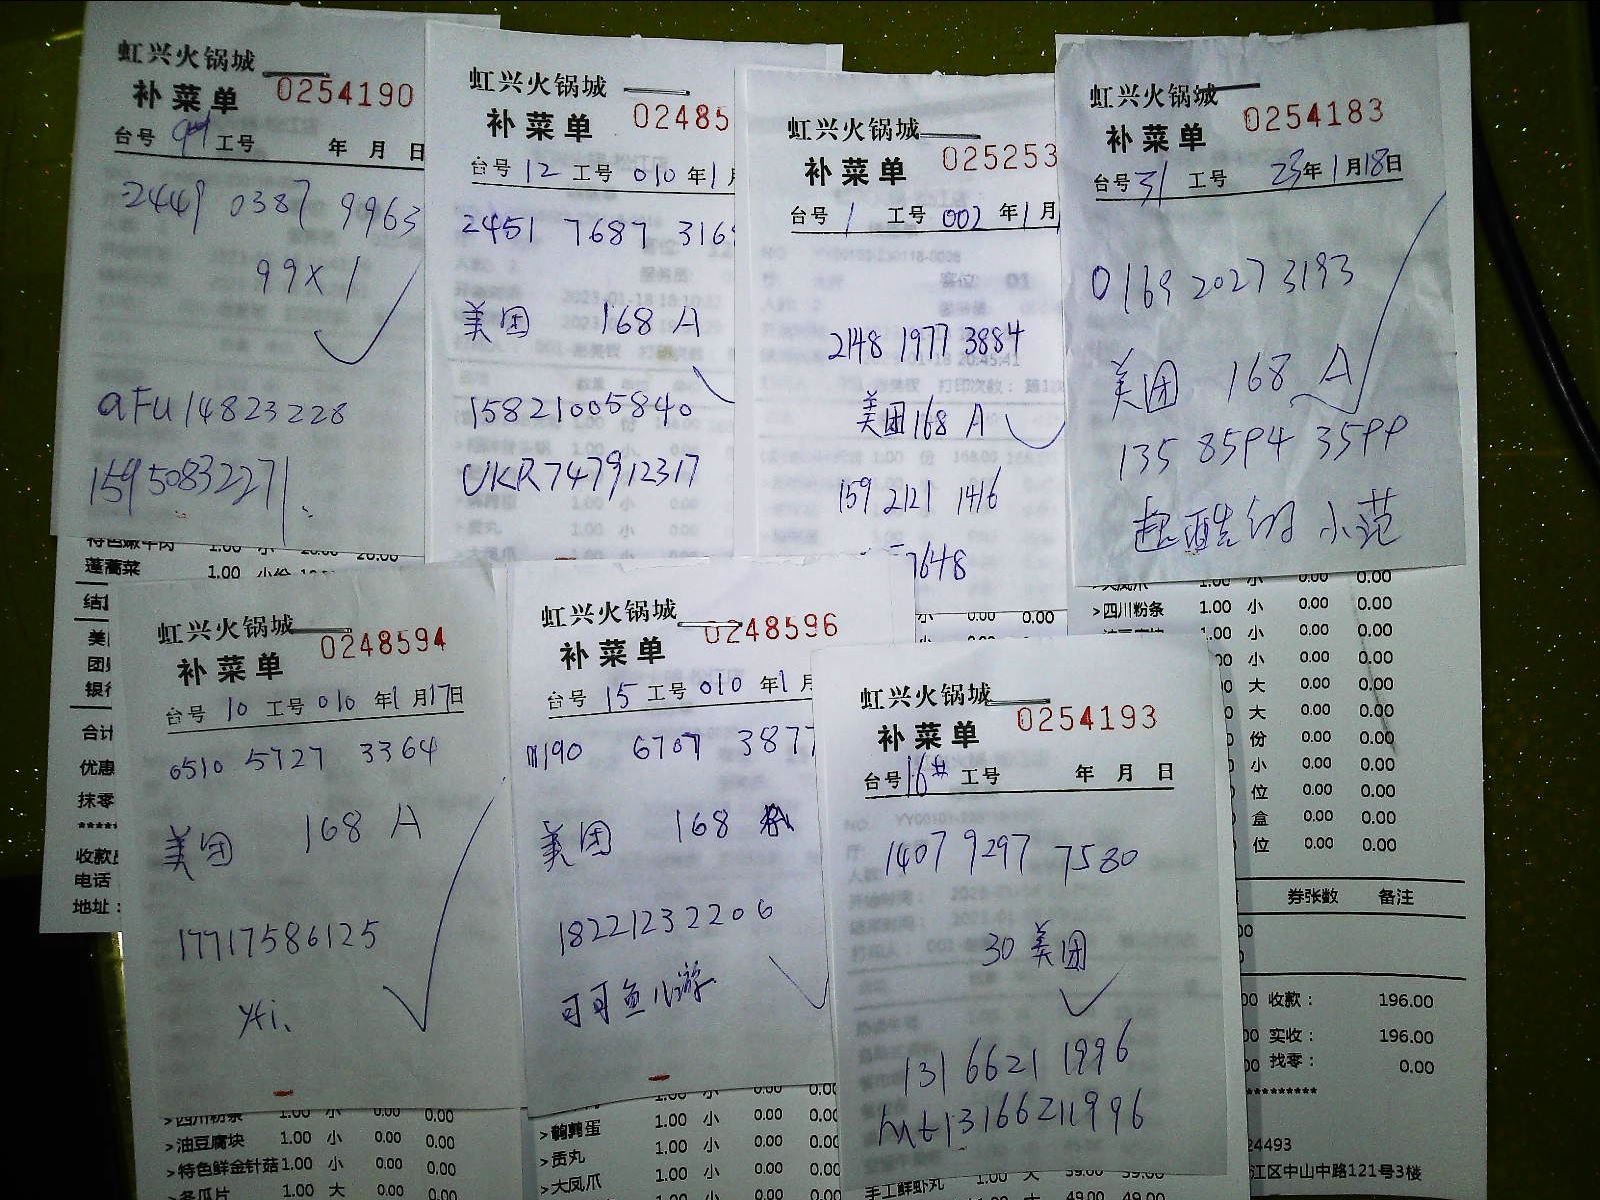 虹兴火锅城
补菜单 0254190
台号 工号 年 月 日
2449 0387 9963
99X1
aFu14823228
15950832271
蓬蒿菜 1.00
虹兴火锅城
补菜单 02485
台号 12 工号 010 年1
2451 7687 316
美团 168 A
15821005840
UKR747912317
虹兴火锅城
补菜单 025253
台号 1 工号 002 年1月
2148 1977 3884
美团168 A
159 2121 1416
7648
虹兴火锅城
补菜单 0254183
台号31 工号 23年1月18日
0169 2027 3193
美团 168 A
135 8594 3599
超酷的小范
>四川粉条 1.00 小 0.00 0.00
小 0.00 0.00
小 0.00 0.00
大 0.00 0.00
大 0.00 0.00
份 0.00 0.00
小 0.00 0.00
位 0.00 0.00
盒 0.00 0.00
位 0.00 0.00
券张数 备注
收款: 196.00
实收: 196.00
找零: 0.00
24493
江区中山中路121号3楼
合计
优惠
抹零
收款
电话
地址:
虹兴火锅城
补菜单 0248594
台号 10 工号 010 年1月17日
0510 5727 3364
美团 168 A
17717586125
>四川粉条 1.00 小 0.00 0.00
>油豆腐块 1.00 小 0.00 0.00
>特色鲜金针菇 1.00 小 0.00 0.00
>冬瓜片 1.00 大 0.00 0.00
虹兴火锅城
补菜单 0248596
台号 15 工号 010 年1月
6707 3877
美团 168
18221232206
可可鱼儿游
>鹌鹑蛋 1.00 小 0.00 0.00
>贡丸 1.00 小 0.00 0.00
>大凤爪 1.00 小 0.00 0.00
虹兴火锅城
补菜单 0254193
台号16# 工号 年 月 日
1407 9297 7580
30 美团
131 6621 1996
hnt13166211996
手工鲜虾丸 1.00 大 59.00 59.00
大 49.00 49.00